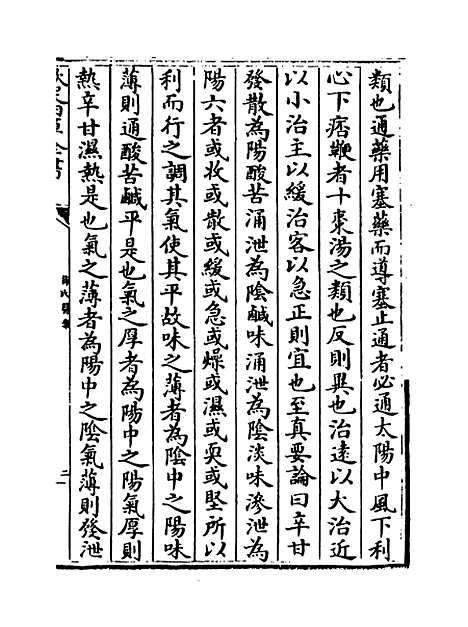 類也通藥用塞藥而導塞止通者必通太陽中風下利
心下痞鞕者十棗湯之類也反則異也治逺以大治近
以小治主以緩治客以急正則宜也至真要論曰辛甘
發散為陽酸苦涌泄為陰鹹味涌泄為陰淡味滲泄為
陽六者或收或散或緩或急或燥或濕或耎或堅所以
利而行之調其氣使其平故味之薄者為陰中之陽味
薄則通酸苦鹹平是也氣之厚者為陽中之陽氣厚則
熱辛甘濕熱是也氣之薄者為陽中之陰氣薄則發泄
欽定四庫全書